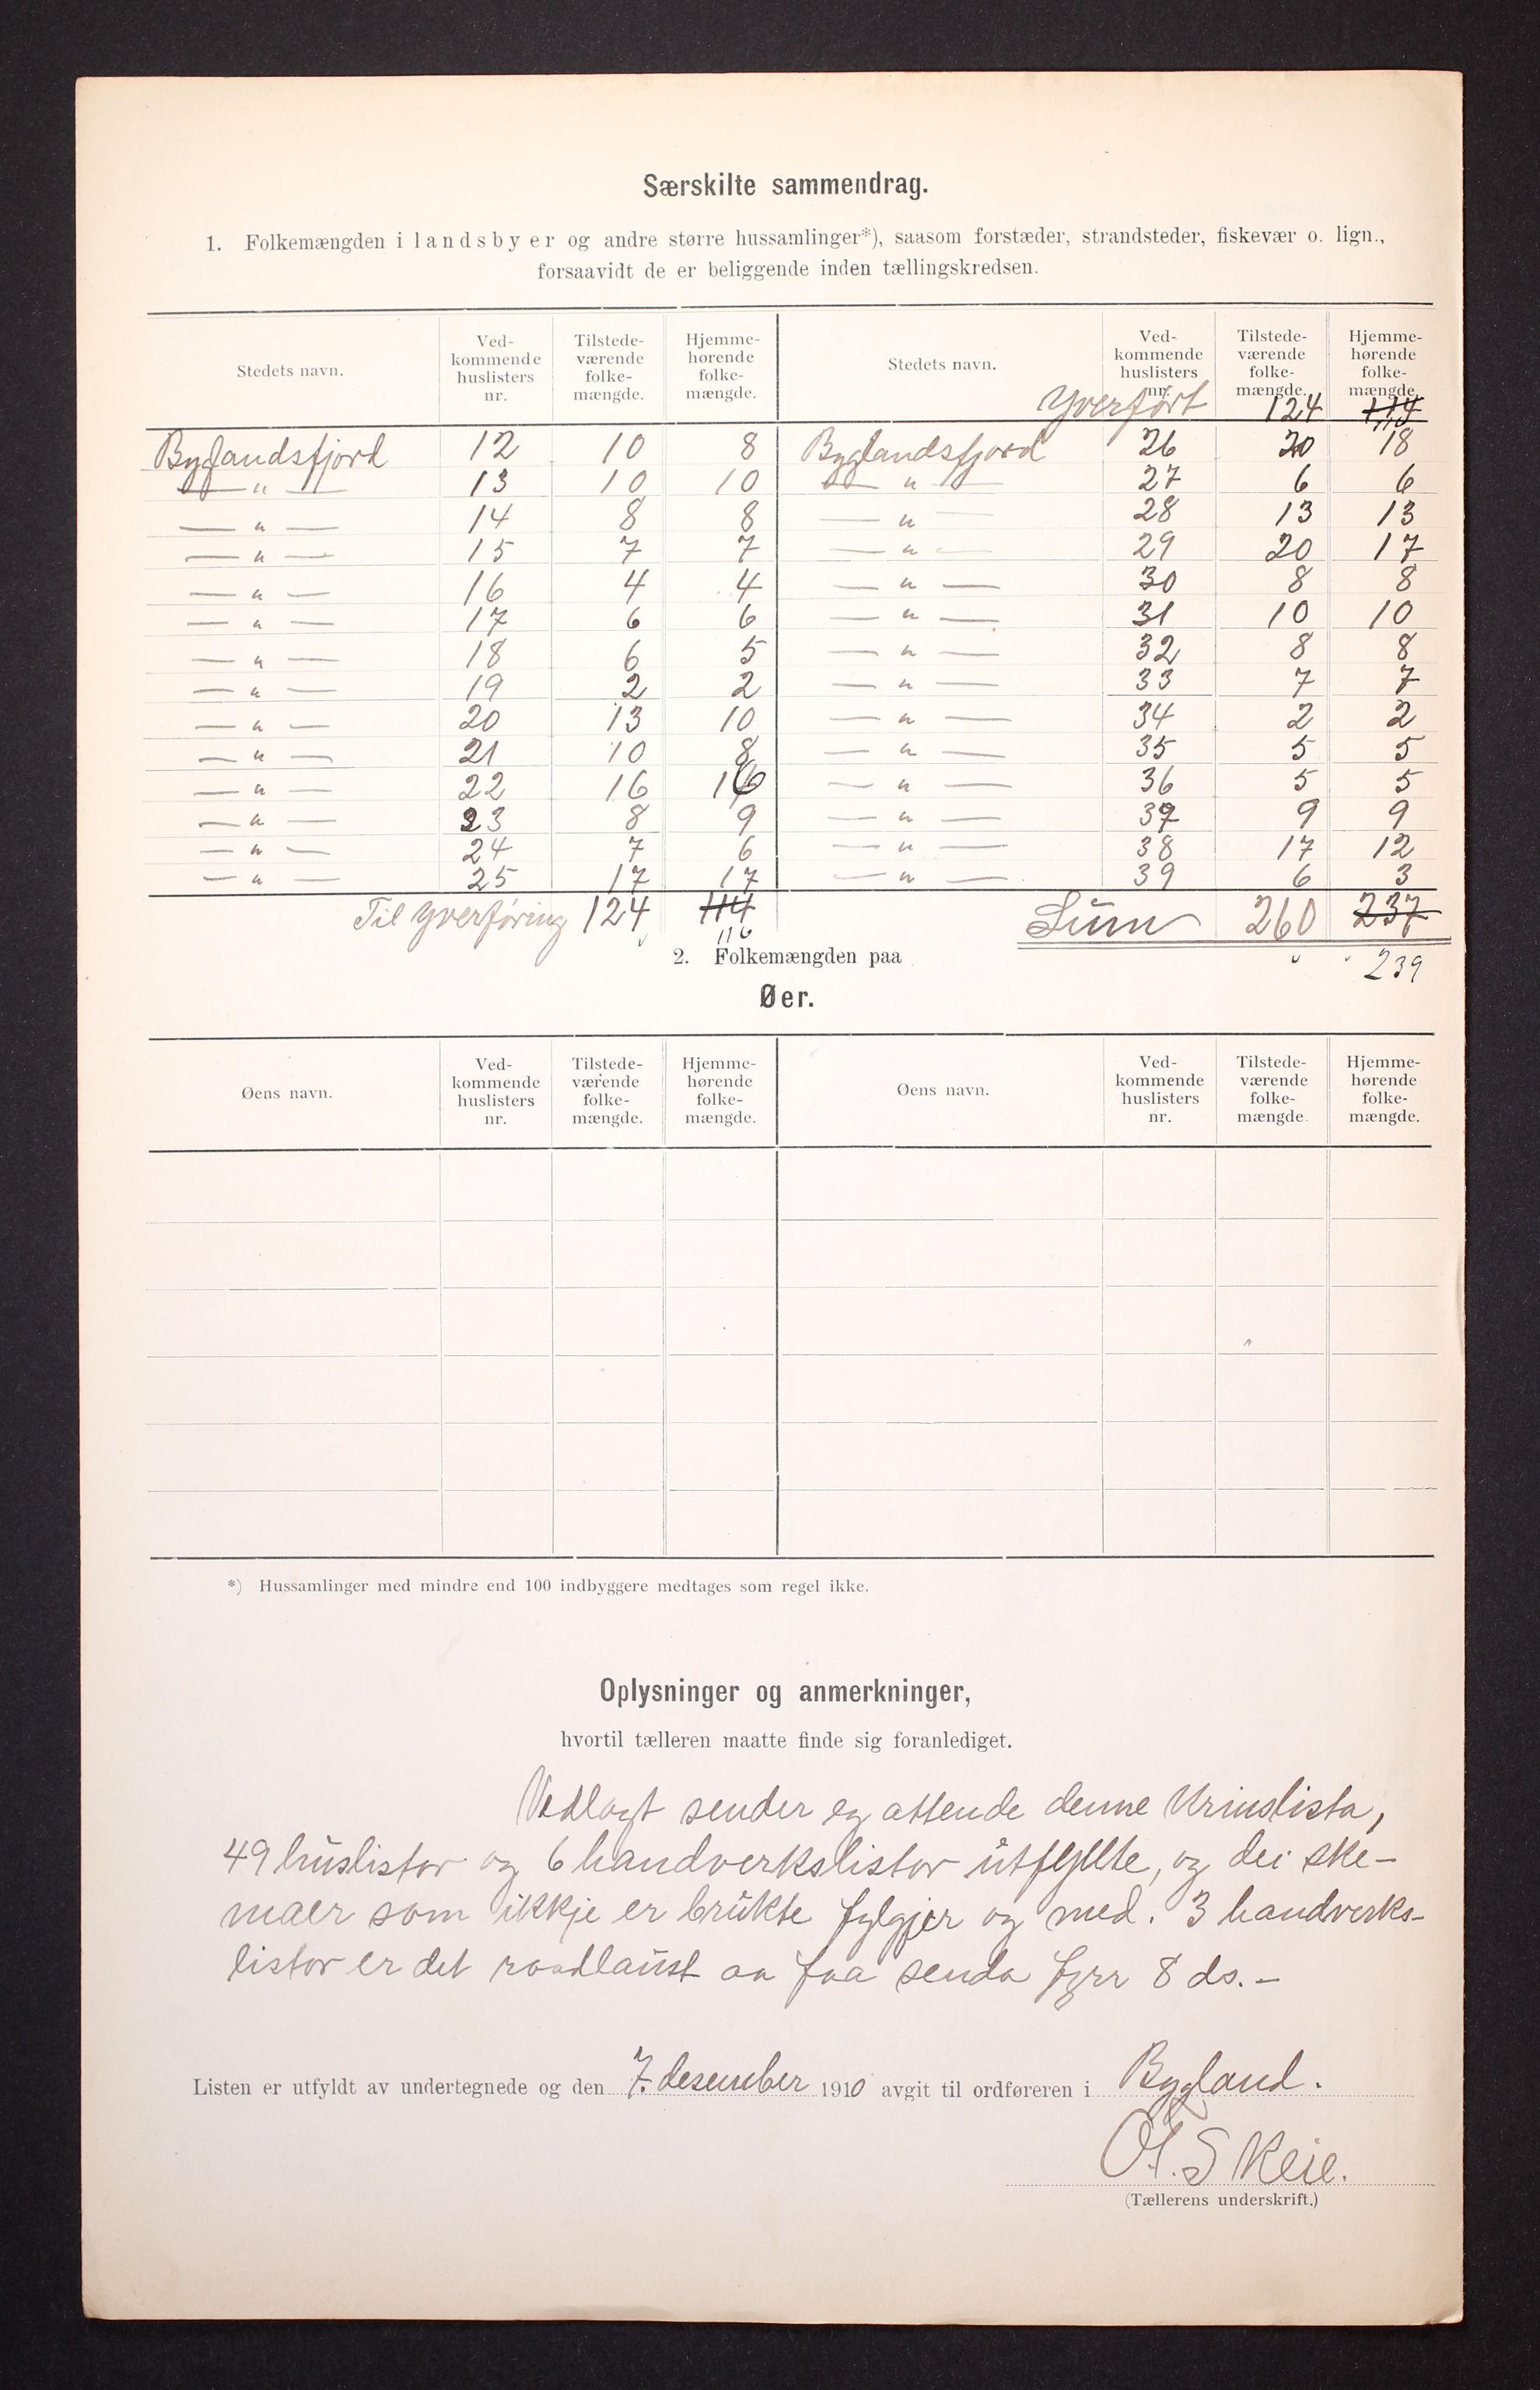 Særskilte sammendrag.
1. Folkemængden i landsbyer og andre større hussamlinger*), saasom forstæder, strandsteder, fiskevær o. lign.,
forsaavidt de er beliggende inden tællingskredsen.
Stedets navn. Ved-kommende huslisters nr. Tilstede-værende folke-mængde. Hjemme-hørende folke-mængde. Stedets navn. Ved-kommende huslisters nr. Tilstede-værende folke-mængde. Hjemme-hørende folke-mængde.
Yverført 124 114 116
Byglandsfjord 12 10 8 Byglandsfjord 26 20 18
— „ — 13 10 10 — „ — 27 6 6
— „ — 14 8 8 — „ — 28 13 13
— „ — 15 7 7 — „ — 29 20 17
— „ — 16 4 4 — „ — 30 8 8
— „ — 17 6 6 — „ — 31 10 10
— „ — 18 6 5 — „ — 32 8 8
— „ — 19 2 2 — „ — 33 7 7
— „ — 20 13 10 — „ — 34 2 2
— „ — 21 10 8 — „ — 35 5 5
— „ — 22 16 16 — „ — 36 5 5
— „ — 23 8 9 — „ — 37 9 9
— „ — 24 7 6 — „ — 38 17 12
— „ — 25 17 17 — „ — 39 6 3
Til Yverføring 124 114 Sum 260 237
116
239
2. Folkemængden paa
Øer.
Øens navn. Ved-kommende huslisters nr. Tilstede-værende folke-mængde. Hjemme-hørende folke-mængde. Øens navn. Ved-kommende huslisters nr. Tilstede-værende folke-mængde. Hjemme-hørende folke-mængde.
*) Hussamlinger med mindre end 100 indbyggere medtages som regel ikke.
Oplysninger og anmerkninger,
hvortil tælleren maatte finde sig foranlediget.
Vedlagt sender eg attende denne Krinslista,
49 huslistor og 6 handverkslistor utfyllte, og dei ske-
maer som ikkje er brukte fylgjer og med. 3 handverks-
listor er det raadlaust aa faa senda fyrr 8 ds. –
Listen er utfyldt av undertegnede og den 7. desember 1910 avgit til ordføreren i Bygland.
Ol. S Keie.
(Tællerens underskrift.)